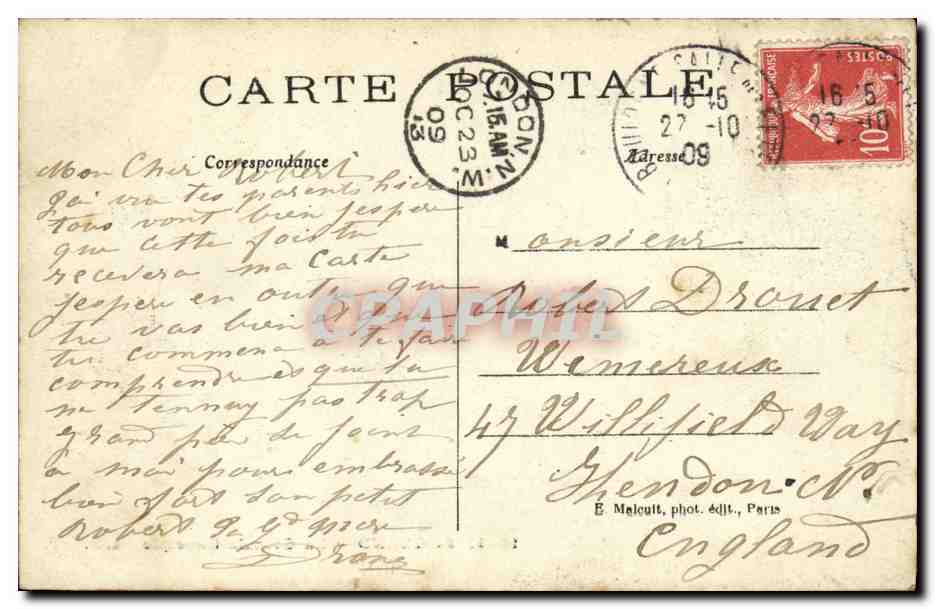 CARTE POSTALE
LONDON. N.W.
.15.AM
OC 23
09
13
16 45
22 -10
09
16 45
POSTES
10
Correspondance
Adresse
Mon Cher Robert
j'ai vu tes parents hier
tous vont bien jespere
que cette fois tu
recevera ma carte
jespere en outre que
tu vas bien et que
tu commence a te faire
comprendre es que tu
ne tennuy pas trop
grand père se joint
a moi pour embrassé
bien fort son petit
Robert ta Gd mere
Monsieur
Robert Drouet
Wemereux
47 Willifield Way
Hendon. N.
England
E. Malcuit, phot. édit., Paris
CPAPHIL